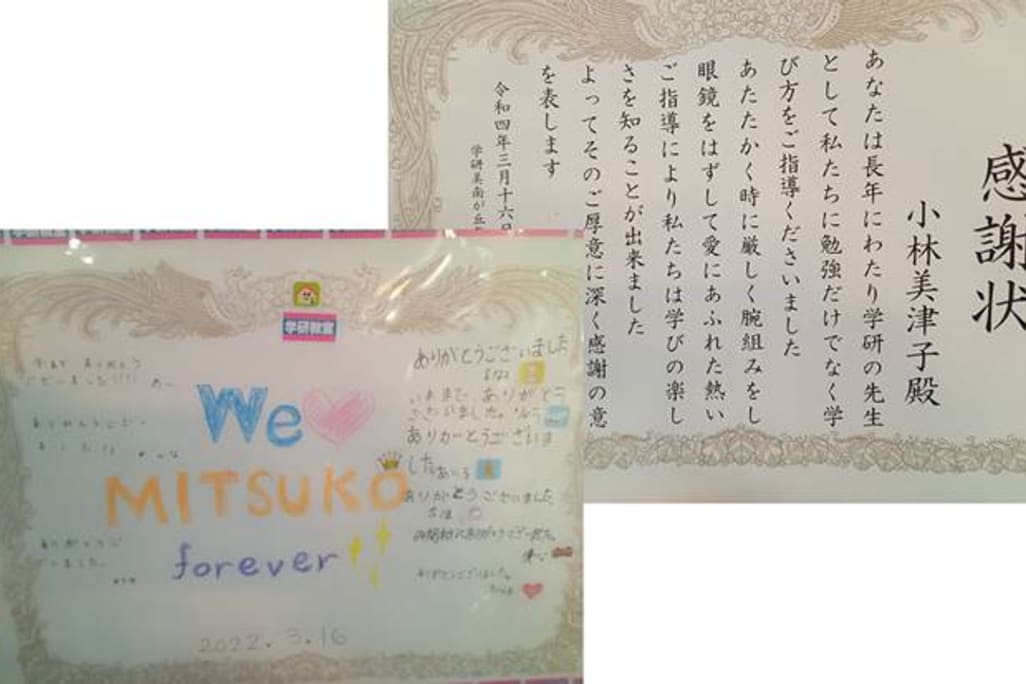 感謝状
小林美津子殿
あなたは長年にわたり学研の先生
として私たちに勉強だけでなく学
び方をご指導くださいました
あたたかく時に厳しく腕組みをし
眼鏡をはずして愛にあふれた熱い
ご指導により私たちは学びの楽し
さを知ることが出来ました
よってそのご厚意に深く感謝の意
を表します
令和四年三月十六日
学研美南が丘
学研教室
We
MITSUKO
forever
2022.3.16
今まで ありがとう
ございました!!!!
ありがとうござい
ました
ありがとうご
ざいました。
ありがとうございました
いままで ありがとう
ございました。
ありがとうございま
した
ありがとうございました。
ありがとうございました。